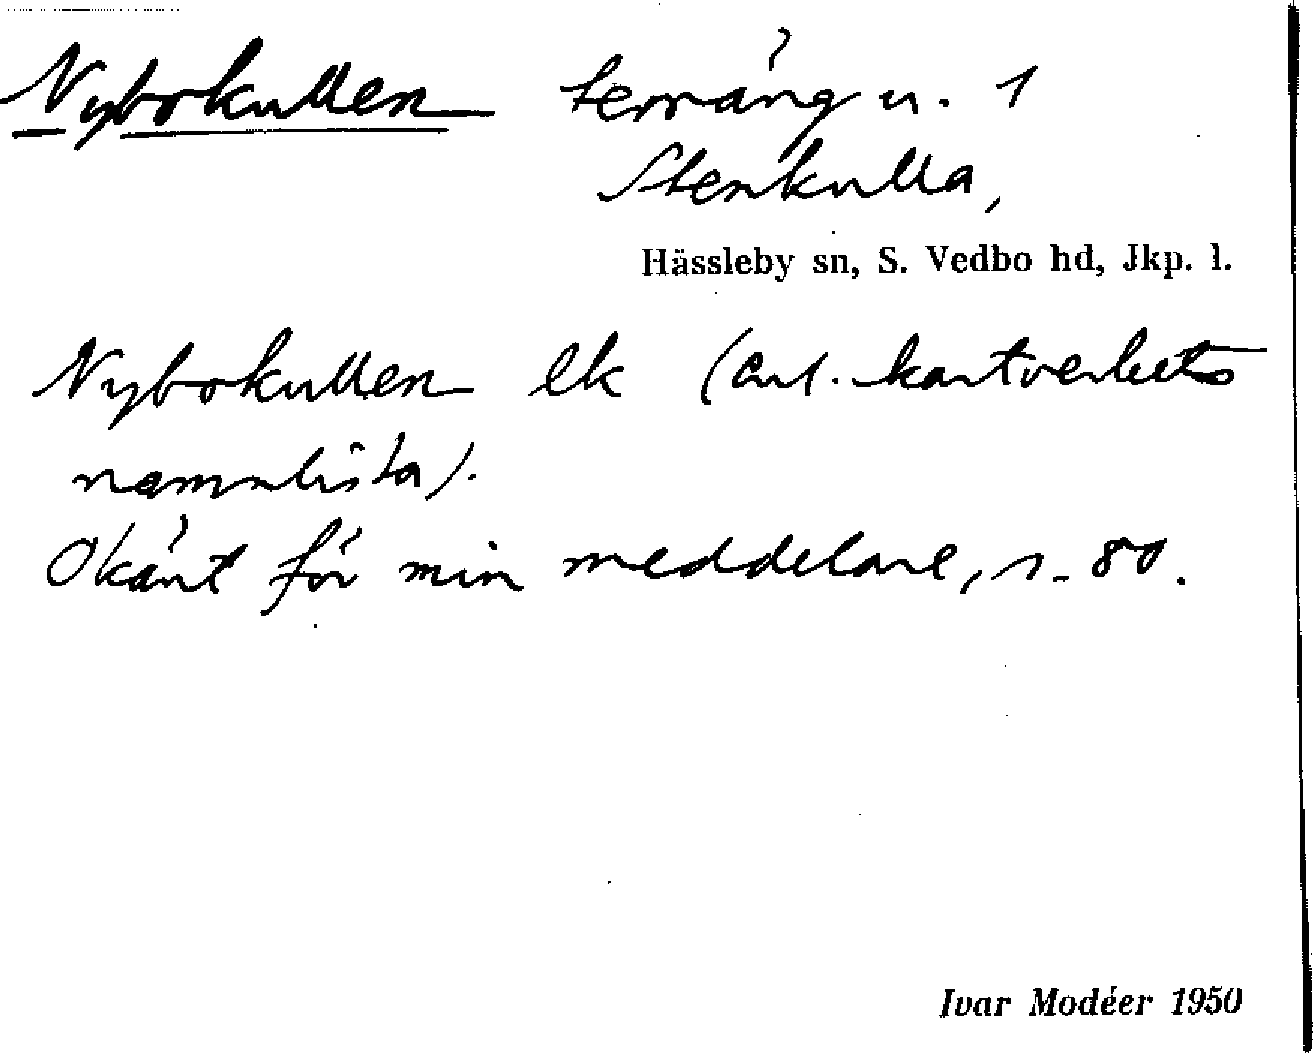 Nybokullen terräng u. 1
Stenkulla,
Hässleby sn, S. Vedbo hd, Jkp. l.
Nybokullen ek (enl. kartverkets
namnlista).
Okänt för min meddelare, s. 80.
Ivar Modéer 1950